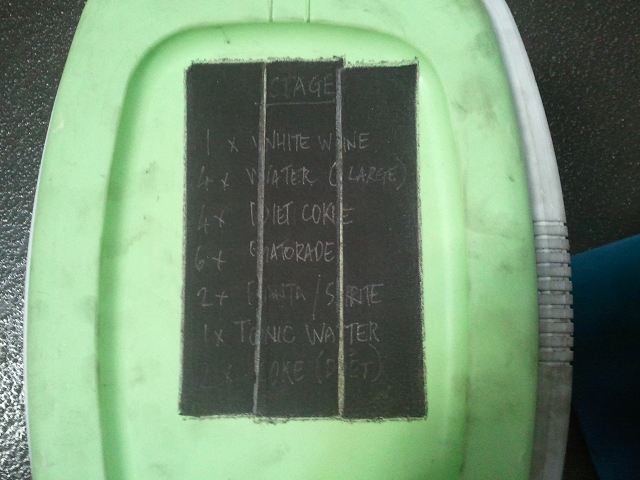 STAGE
1 x WHITE WINE
4 x WATER (LARGE)
4 x DIET COKE
6 x GATORADE
2 x FANTA / SPRITE
1 x TONIC WATER
2 x COKE (DIET)